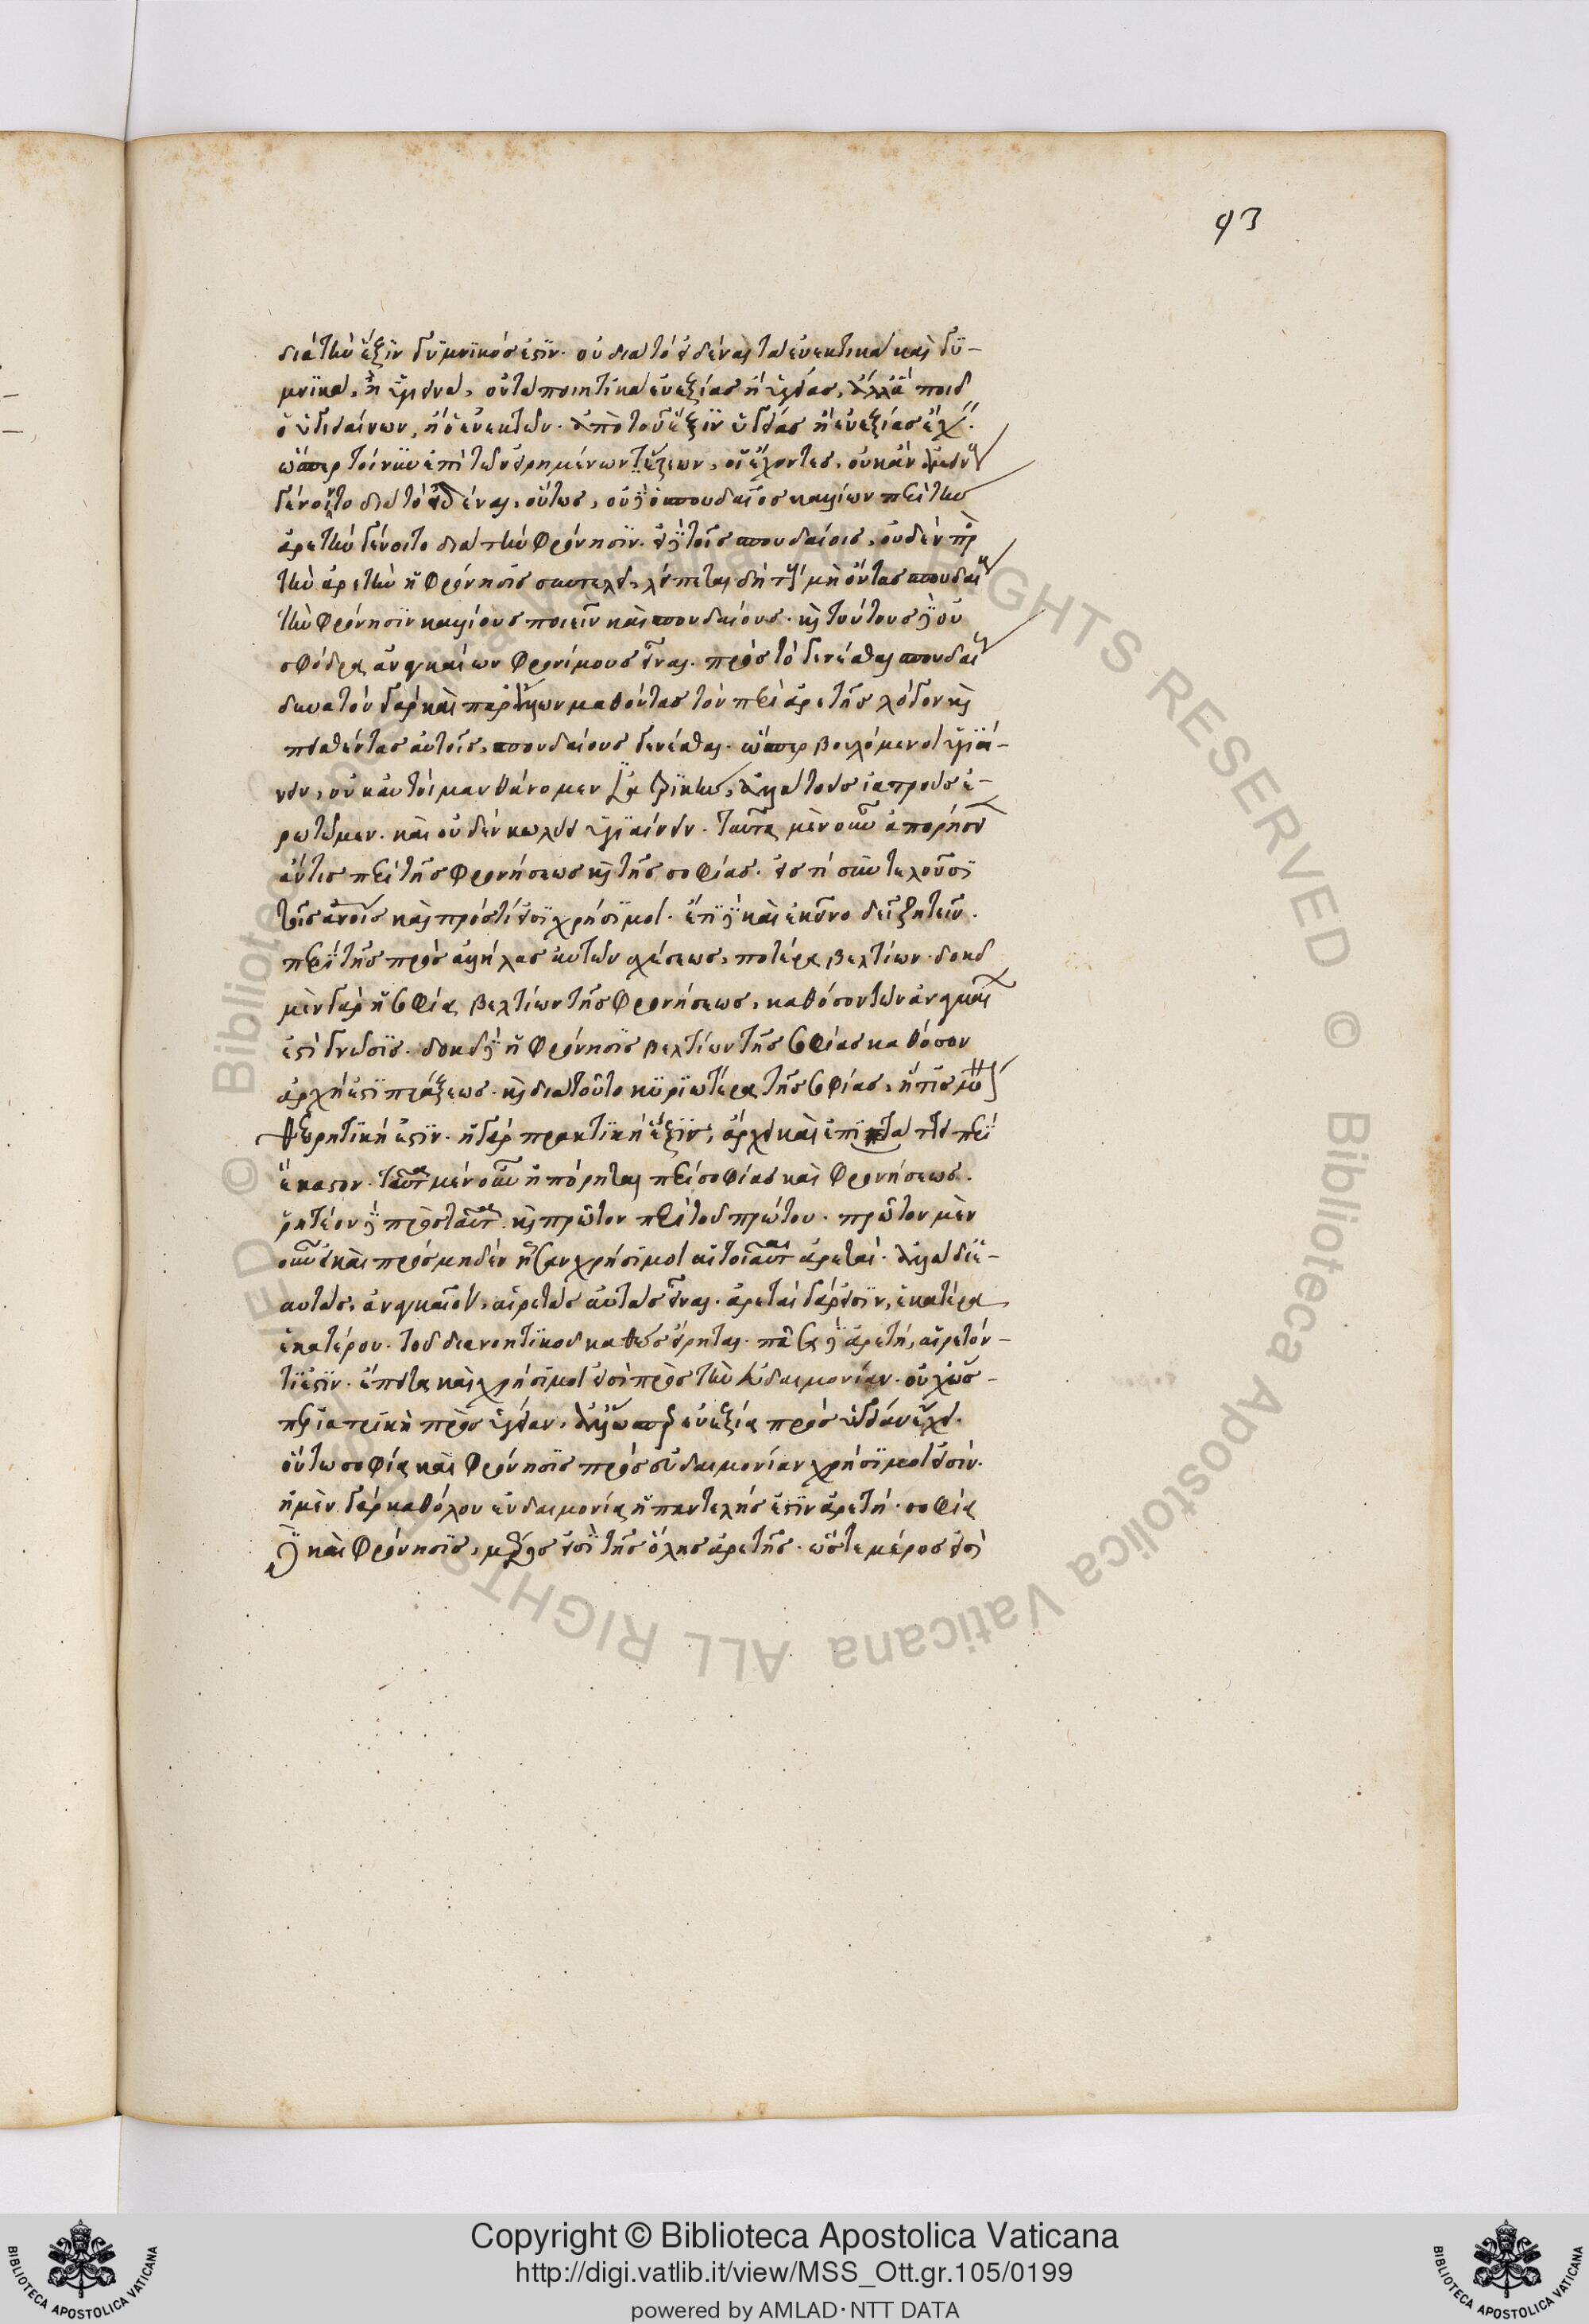 93
διὰ τὴν ἕξιν γυμνικός ἐστιν. οὐ διὰ τὸ εἰδέναι τὰ εὐεκτικὰ καὶ γυ-
μνικὰ, ἢ ὑγιεινὰ, οὔτε ποιητικὰ εὐεξίας ἢ ὑγείας, ἀλλὰ ποιεῖ
ὁ ὑγιαίνων, ἢ ὁ εὐεκτῶν. ἀπὸ τοῦ ἕξιν ὑγείας ἢ εὐεξίας ἔχειν.
ὥσπερ τοίνυν ἐπὶ τῶν εἰρημένων ἕξεων, οἱ ἔχοντες, οὐκ ἂν ἀμείνους
γένοιντο διὰ τὸ εἰδέναι, οὕτως, οὐδὲ ὁ σπουδαῖος καλλίων περὶ τὴν
ἀρετὴν γένοιτο διὰ τὴν φρόνησιν. εἰ δὲ τοῖς σπουδαίοις, οὐδὲν πρὸς
τὴν ἀρετὴν ἡ φρόνησις συντελεῖ, λείπεται δὴ τοὺς μὴ ὄντας σπουδαίους
τὴν φρόνησιν καλλίους ποιεῖν καὶ σπουδαίους. καὶ τούτους δὲ οὐ
σφόδρα ἀναγκαῖον φρονίμους εἶναι. πρὸς τὸ γενέσθαι σπουδαίους
δυνατὸν γὰρ καὶ παρ' ἄλλων μαθόντας τὸν περὶ ἀρετῆς λόγον καὶ
πεισθέντας αὐτοῖς, σπουδαίους γενέσθαι. ὥσπερ βουλόμενοι ὑγιαί-
νειν, οὐκ αὐτοὶ μανθάνομεν ἰατρικὴν, ἀλλὰ τοὺς ἰατροὺς ἐ-
ρωτῶμεν. καὶ οὐδὲν κωλύει ὑγιαίνειν. ταῦτα μὲν οὖν ἀπορήσει
ἄν τις περὶ τῆς φρονήσεως καὶ τῆς σοφίας. εἰς τί συντελοῦσι
τοῖς ἀνοις καὶ πρὸς τί εἰσι χρήσιμοι. ἔτι δὲ καὶ ἐκεῖνο δεῖ ζητεῖν.
περὶ τῆς πρὸς ἀλλήλας αὐτῶν σχέσεως, ποτέρα βελτίων. δοκεῖ
μὲν γὰρ ἡ σοφία βελτίων τῆς φρονήσεως, καθόσον τῶν ἀναγκαίων
ἐστὶ γνῶσις. δοκεῖ δὲ ἡ φρόνησις βελτίων τῆς σοφίας καθόσον
ἀρχή ἐστι πράξεως. καὶ διὰ τοῦτο κυριωτέρα τῆς σοφίας, ἥτις μὲν
θεωρητική ἐστιν. ἡ γὰρ πρακτικὴ ἕξις, ἄρχει καὶ ἐπιτάττει περὶ
ἕκαστον. ταῦτα μὲν οὖν ἠπόρηται περὶ σοφίας καὶ φρονήσεως.
ῥητέον δὲ πρὸς ταῦτα. καὶ πρῶτον περὶ τοῦ πρώτου. πρῶτον μὲν
οὖν εἰ καὶ πρὸς μηδὲν ἦσαν χρήσιμοι αἱ τοιαῦται ἀρεταί. ἀλλὰ δι' ἑ-
αυτὰς, ἀναγκαῖον, αἱρετὰς αὐτὰς εἶναι. ἀρεταὶ γάρ εἰσιν, ἑκατέρα
ἑκατέρου. τοῦ διανοητικοῦ καθὼς εἴρηται. πᾶσα δὲ ἀρετή, αἱρετόν-
τί ἐστιν. ἔπειτα καὶ χρήσιμοί εἰσι πρὸς τὴν εὐδαιμονίαν. οὐχ ὥσ-
περ ἰατρικὴ πρὸς ὑγείαν, ἀλλ' ὥσπερ εὐεξία πρὸς ὑγείαν ἔχει.
οὕτω σοφία καὶ φρόνησις πρὸς εὐδαιμονίαν χρήσιμοί εἰσιν.
ἡ μὲν γὰρ καθόλου εὐδαιμονία ἡ παντελής ἐστιν ἀρετή. σοφία
δὲ καὶ φρόνησις, μέρος εἰσὶ τῆς ὅλης ἀρετῆς. ὥστε μέρος εἰσὶ
© Biblioteca Apostolica Vaticana ALL RIGHTS RESERVED
Copyright © Biblioteca Apostolica Vaticana
http://digi.vatlib.it/view/MSS_Ott.gr.105/0199
powered by AMLAD·NTT DATA
BIBLIOTECA APOSTOLICA VATICANA
BIBLIOTECA APOSTOLICA VATICANA